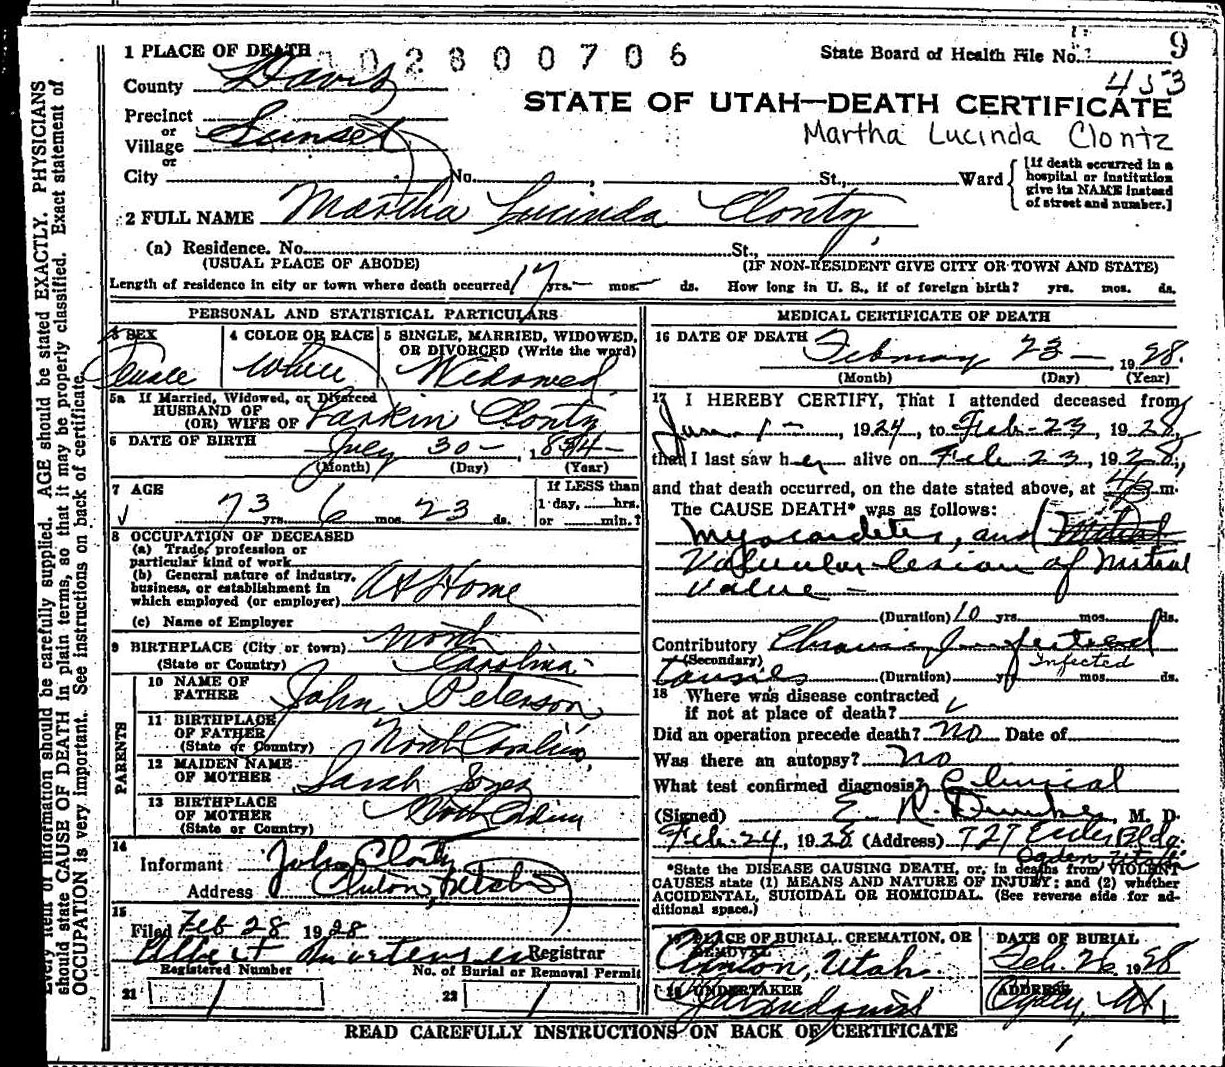 1 PLACE OF DEATH 102800706 State Board of Health File No. 9
County Davis 453
STATE OF UTAH—DEATH CERTIFICATE
Precinct
or Sunset Martha Lucinda Clontz
Village
or
City No. St., Ward [If death occurred in a
hospital or institution
give its NAME instead
of street and number.]
2 FULL NAME Martha Lucinda Clontz
(a) Residence. No. St.,
(USUAL PLACE OF ABODE) (IF NON-RESIDENT GIVE CITY OR TOWN AND STATE)
Length of residence in city or town where death occurred 17 yrs. — mos. — ds. How long in U. S., if of foreign birth? yrs. mos. ds.
PERSONAL AND STATISTICAL PARTICULARS
3 SEX 4 COLOR OR RACE 5 SINGLE, MARRIED, WIDOWED,
OR DIVORCED (Write the word)
Female White Widowed
5a If Married, Widowed, or Divorced
HUSBAND OF
(OR) WIFE OF Larkin Clontz
6 DATE OF BIRTH July 30 — , 1854
(Month) (Day) (Year)
7 AGE If LESS than
1 day, hrs.
73 yrs. 6 mos. 23 ds. or min.?
8 OCCUPATION OF DECEASED
(a) Trade, profession or
particular kind of work
(b) General nature of industry,
business, or establishment in
which employed (or employer) At Home
(c) Name of Employer
9 BIRTHPLACE (City or town) North
(State or Country) Carolina
PARENTS
10 NAME OF
FATHER John Peterson
11 BIRTHPLACE
OF FATHER
(State or Country) North Carolina
12 MAIDEN NAME
OF MOTHER Sarah Jones
13 BIRTHPLACE
OF MOTHER
(State or Country)
14
Informant John Clontz
Address Clinton, Utah
15
Filed Feb 28 1928
Albert Registrar
Registered Number No. of Burial or Removal Permit
21 1 22 1
MEDICAL CERTIFICATE OF DEATH
16 DATE OF DEATH February 23 — , 1928.
(Month) (Day) (Year)
17 I HEREBY CERTIFY, That I attended deceased from
1 — , 1924, to Feb - 23, 1928,
that I last saw her alive on Feb 23, 1928,
and that death occurred, on the date stated above, at m.
The CAUSE DEATH* was as follows:
Myocarditis, and
Valvular lesion of Mitral
Valve —
(Duration) 10 yrs. mos. ds.
Contributory Chronic Infected
(Secondary) Infected
tonsils (Duration) yrs. mos. ds.
18 Where was disease contracted
if not at place of death?
Did an operation precede death? No Date of
Was there an autopsy? No
What test confirmed diagnosis? Clinical
(Signed) E. R. , M. D.
Feb. 24, 1928 (Address) 727 Eccles Bldg.
Ogden, Utah
*State the DISEASE CAUSING DEATH, or, in deaths from VIOLENT
CAUSES state (1) MEANS AND NATURE OF INJURY; and (2) whether
ACCIDENTAL, SUICIDAL OR HOMICIDAL. (See reverse side for ad-
ditional space.)
19 PLACE OF BURIAL, CREMATION, OR DATE OF BURIAL
REMOVAL
Clinton, Utah Feb. 26 1928
20 UNDERTAKER ADDRESS
READ CAREFULLY INSTRUCTIONS ON BACK OF CERTIFICATE
Every item of information should be carefully supplied. AGE should be stated EXACTLY. PHYSICIANS
should state CAUSE OF DEATH in plain terms, so that it may be properly classified. Exact statement of
OCCUPATION is very important. See instructions on back of certificate.